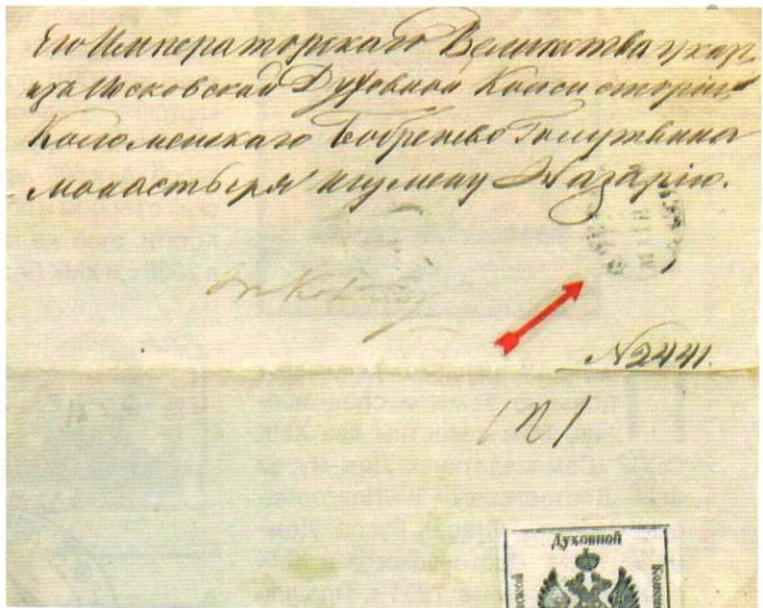 Его Императорскаго Величества указ
изъ Московской Духовной Консисторіи
Коломенскаго Бобренево Голутвина
монастыря игумену Назарію.
N2441.
Духовной